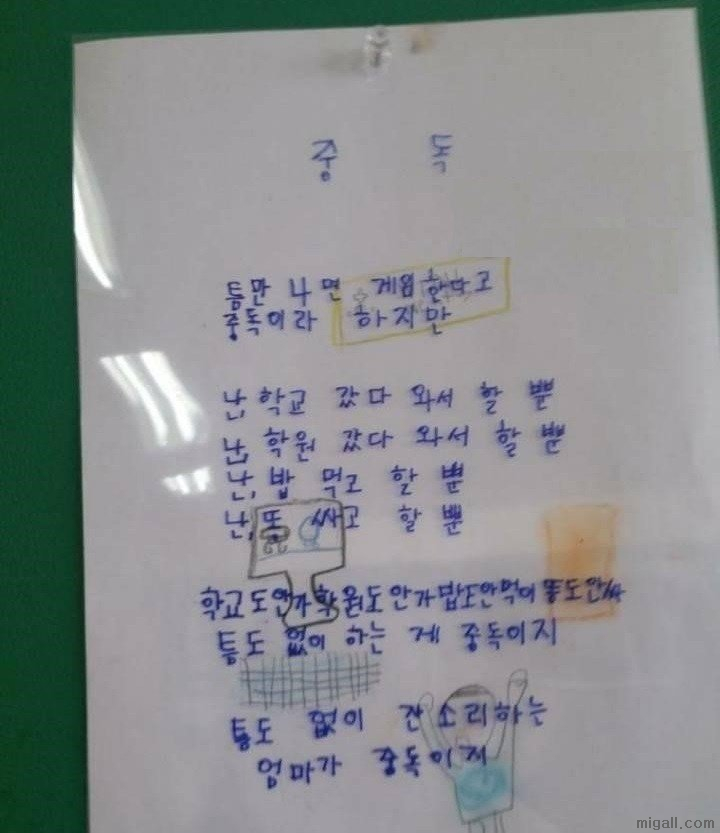 중 독
틈만 나면 게임한다고
중독이라 하지만
난, 학교 갔다 와서 할 뿐
난, 학원 갔다 와서 할 뿐
난, 밥 먹고 할 뿐
난, 똥 싸고 할 뿐
학교도안가학원도안가밥도안먹어똥도안싸
틈도 없이 하는 게 중독이지
틈도 없이 잔소리하는
엄마가 중독이지
migall.com